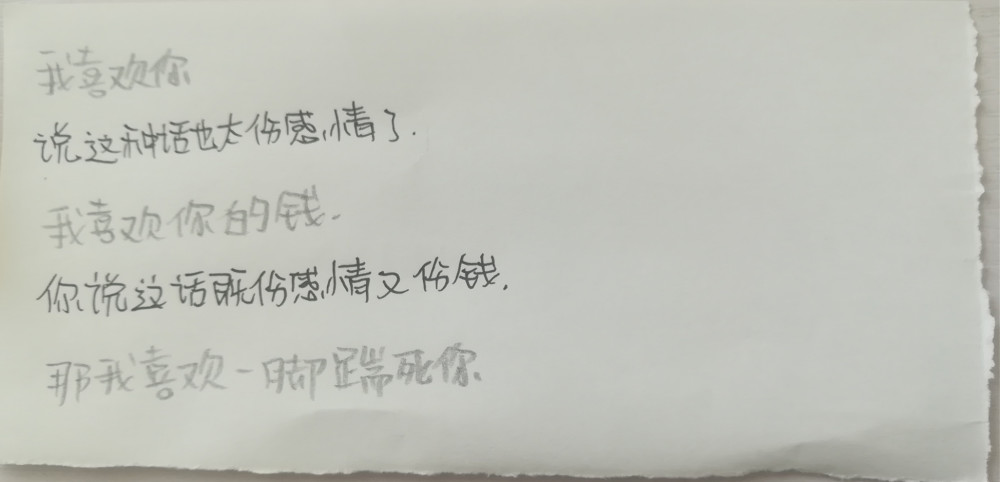 我喜欢你
说这种话也太伤感情了.
我喜欢你的钱.
你说这话既伤感情又伤钱.
那我喜欢一脚踹死你.